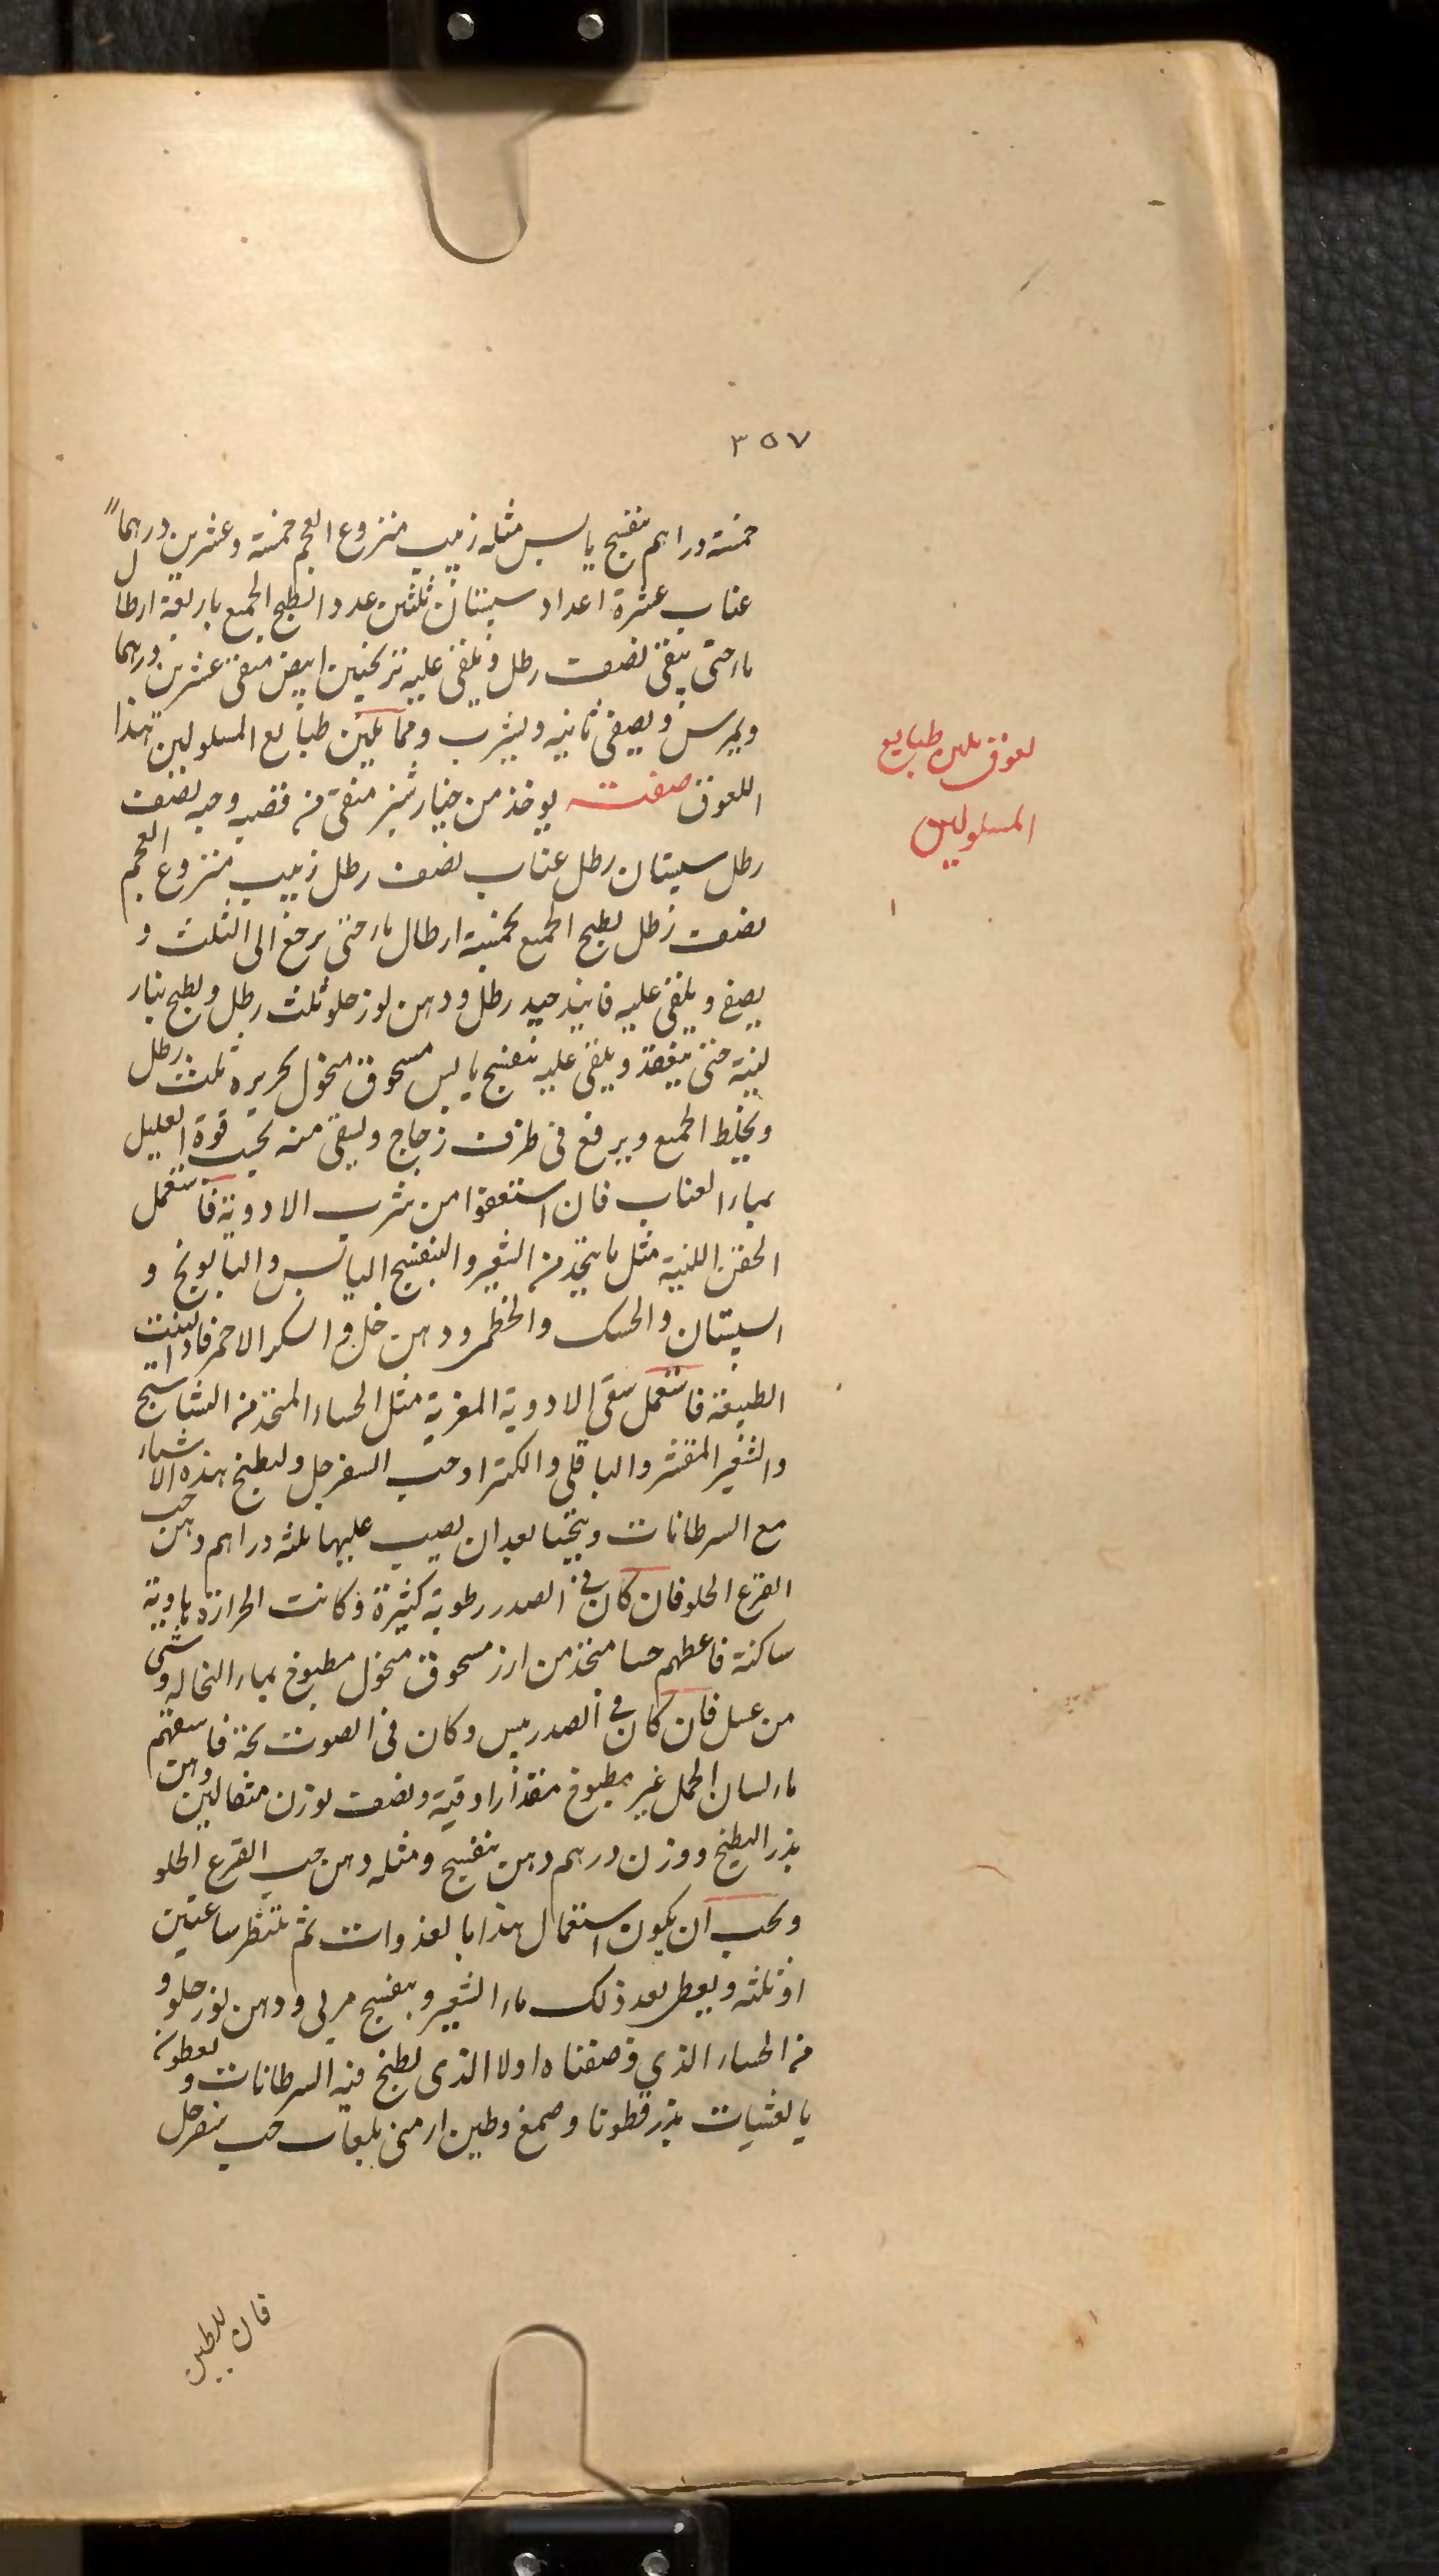 ٣٥٧
خمسة دراهم بنفسج يابس مثله زبيب منزوع العجم خمسة وعشرين درهماً
عناب عشرة اعداد سبستان ثلثين عددا يطبخ الجميع باربعة ارطال
ماء حتى يبقى نصف رطل ويلقى عليه ترنجبين ابيض منقى عشرين درهما
ويمرس ويصفى ثانيه ويشرب ومما يلين طبايع المسلولين هذا
لعوق يلين طبايع
المسلولين
اللعوق صفته يوخذ من خيار شنبر منقى من قصبه وحبه نصف
رطل سبستان رطل عناب نصف رطل زبيب منزوع العجم
نصف رطل يطبخ الجميع بخمسة ارطال ماء حتى يرجع الى الثلث و
يصفى ويلقى عليه فانيذ جيد رطل ودهن لوز حلو ثلث رطل ويطبخ بنار
لينة حتى ينعقد ويلقى عليه بنفسج يابس مسحوق منخول بحريره ثلث رطل
ويخلط الجميع ويرفع فى ظرف زجاج ويسقى منه بحسب قوة العليل
بماء العناب فان استعفوا من شرب الادوية فاستعمل
الحقن اللينة مثل ما يتخذ من الشعير والبنفسج اليابس والبابونج و
السبستان والحسك والخطمى ودهن خل والسكر الاحمر فاذا لينت
الطبيعة فاستعمل سقى الادوية المغرية مثل الحساء المتخذ من النشاستج
والشعير المقشر والباقلى والكثيرا وحب السفرجل وليطبخ هذه الاشياء
مع السرطانات ويتحسا بعد ان يصب عليها ثلثه دراهم دهن حب
القرع الحلو فان كان فى الصدر رطوبة كثيرة وكانت الحرارة هادية
ساكنة فاعطهم حسا متخذ من ارز مسحوق منخول مطبوخ بماء النخاله وشى
من عسل فان كان فى الصدر يبس وكان فى الصوت بحة فاسقهم
ماء لسان الحمل غير مطبوخ مقدار اوقية ونصف بوزن مثقالين دهن
بذر البطيخ ووزن درهم دهن بنفسج ومثله دهن حب القرع الحلو
ويجب ان يكون استعمال هذا بالغدوات ثم تنتظر ساعتين
او ثلثه ويعطى بعد ذلك ماء الشعير وبنفسج مربى ودهن لوز حلو و
من الحساء الذي وصفناه اولا الذى يطبخ فيه السرطانات ويعطونه
بالعشيات بذر قطونا وصمغ وطين ارمنى بلعاب حب سفرجل
فان للطين